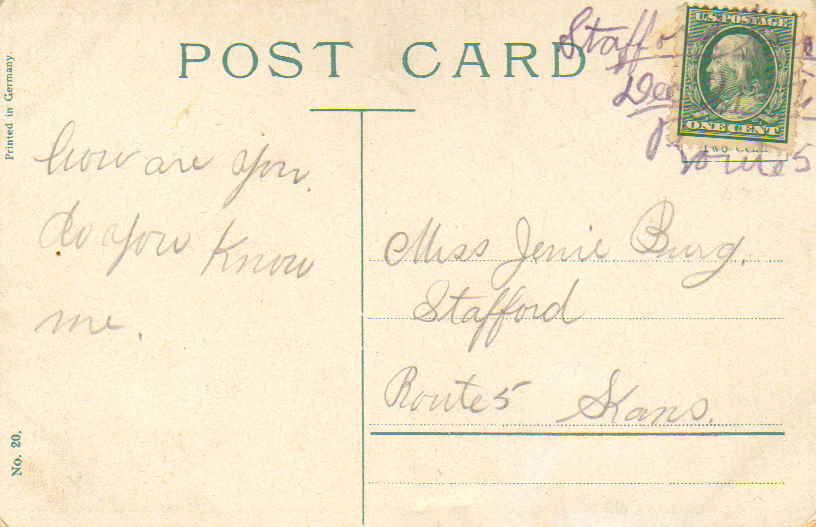 POST CARD
Printed in Germany.
No. 20.
U.S. POSTAGE
ONE CENT
Route 5
how are you.
do you know
me.
Miss Jenie Burg.
Stafford
Route 5 Kans.